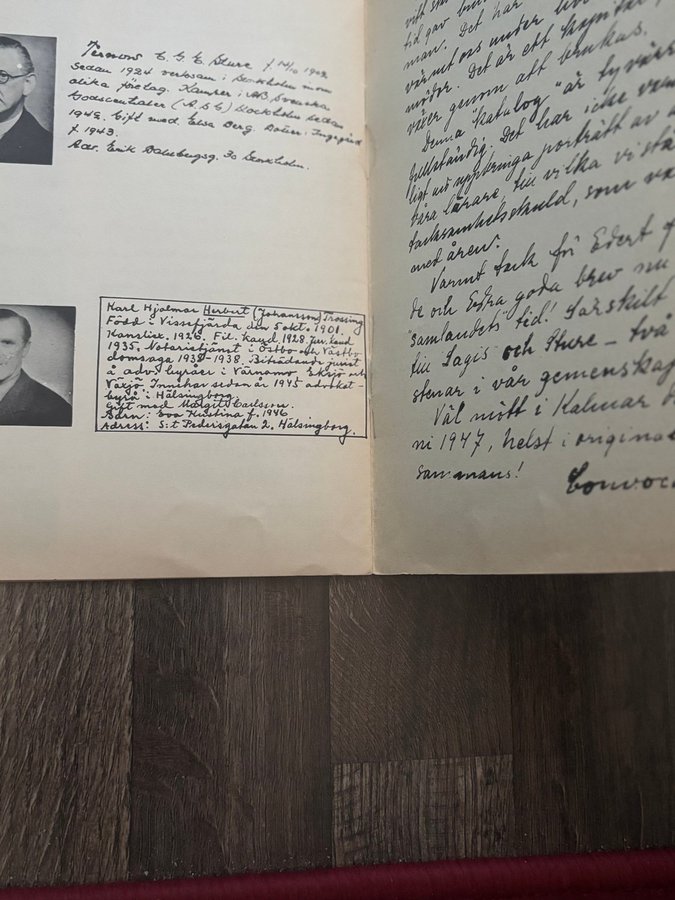 C. G. E. Sture f. 14/10 1902
Sedan 1924 verksam i Stockholm inom
olika företag. Kamrer i AB Svenska
Godscentraler (A.S.G) Stockholm sedan
1945. Gift med Elsa Berg. Dotter: Ingegärd
f. 1943.
Adr. Erik Dahlbergsg. 30 Stockholm.
Karl Hjalmar Herbert (Johansson) Trossing
Född i Vissefjärda den 5 okt. 1901.
Kanslist. 1926. Fil. kand. 1928. Jur. kand
1935. Notarietjänst i Östbo och Västbo
domsaga 1935-1938. Biträdande jurist
å adv. byråer i Värnamo Eksjö och
Växjö. Innehar sedan år 1945 advokat-
byrå i Hälsingborg.
Gift med Margit Carlsson.
Barn: Eva Kristina f. 1946
Adress: S:t Pedersgatan 2. Hälsingborg.
tid gav
man. Det här
värmt oss under
möter. Det är ett kapital,
växer genom att brukas.
Denna "katalog" är tyvärr
fullständig. Det har icke
ligt att uppbringa porträtt av
våra lärare, till vilka vi stå
tacksamhetsskuld, som
med åren.
Varmt tack för Edert
de och Edra goda brev nu
"samlandets" tid! Särskilt
till Lagis och Sture – två
stenar i vår gemenskap
Väl mött i Kalmar
ni 1947, helst i origina
sammans!